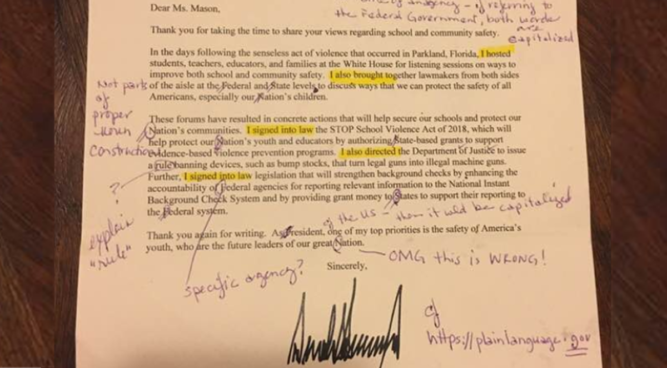 Dear Ms. Mason,
- if referring to
the Federal Government, both words
are
capitalized
Thank you for taking the time to share your views regarding school and community safety.
In the days following the senseless act of violence that occurred in Parkland, Florida, I hosted
students, teachers, educators, and families at the White House for listening sessions on ways to
improve both school and community safety. I also brought together lawmakers from both sides
of the aisle at the Federal and State levels to discuss ways that we can protect the safety of all
Americans, especially our Nation's children.
Not part
of
proper
noun
construction
These forums have resulted in concrete actions that will help secure our schools and protect our
Nation's communities. I signed into law the STOP School Violence Act of 2018, which will
help protect our Nation's youth and educators by authorizing State-based grants to support
evidence-based violence prevention programs. I also directed the Department of Justice to issue
a rule banning devices, such as bump stocks, that turn legal guns into illegal machine guns.
Further, I signed into law legislation that will strengthen background checks by enhancing the
accountability of Federal agencies for reporting relevant information to the National Instant
Background Check System and by providing grant money to States to support their reporting to
the Federal system.
?
explain
"rule"
of the US - then it would be capitalized
Thank you again for writing. As President, one of my top priorities is the safety of America's
youth, who are the future leaders of our great Nation.
OMG this is WRONG!
Sincerely,
specific agency?
cf
https://plainlanguage.gov